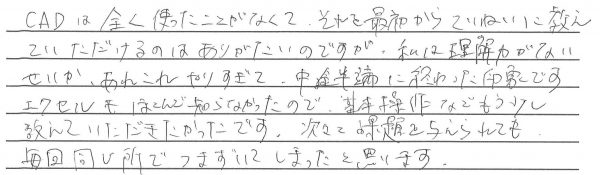 CADは全く使ったことがなくて、それを最初からていねいに教え
ていただけるのはありがたいのですが、私は理解力がない
せいか、あれこれやりすぎて、中途半端に終わった印象です
エクセルもほとんど知らなかったので、基本操作などもう少し
教えていただきたかったです。次々と課題を与えられても
毎回同じ所でつまずいてしまったと思います。